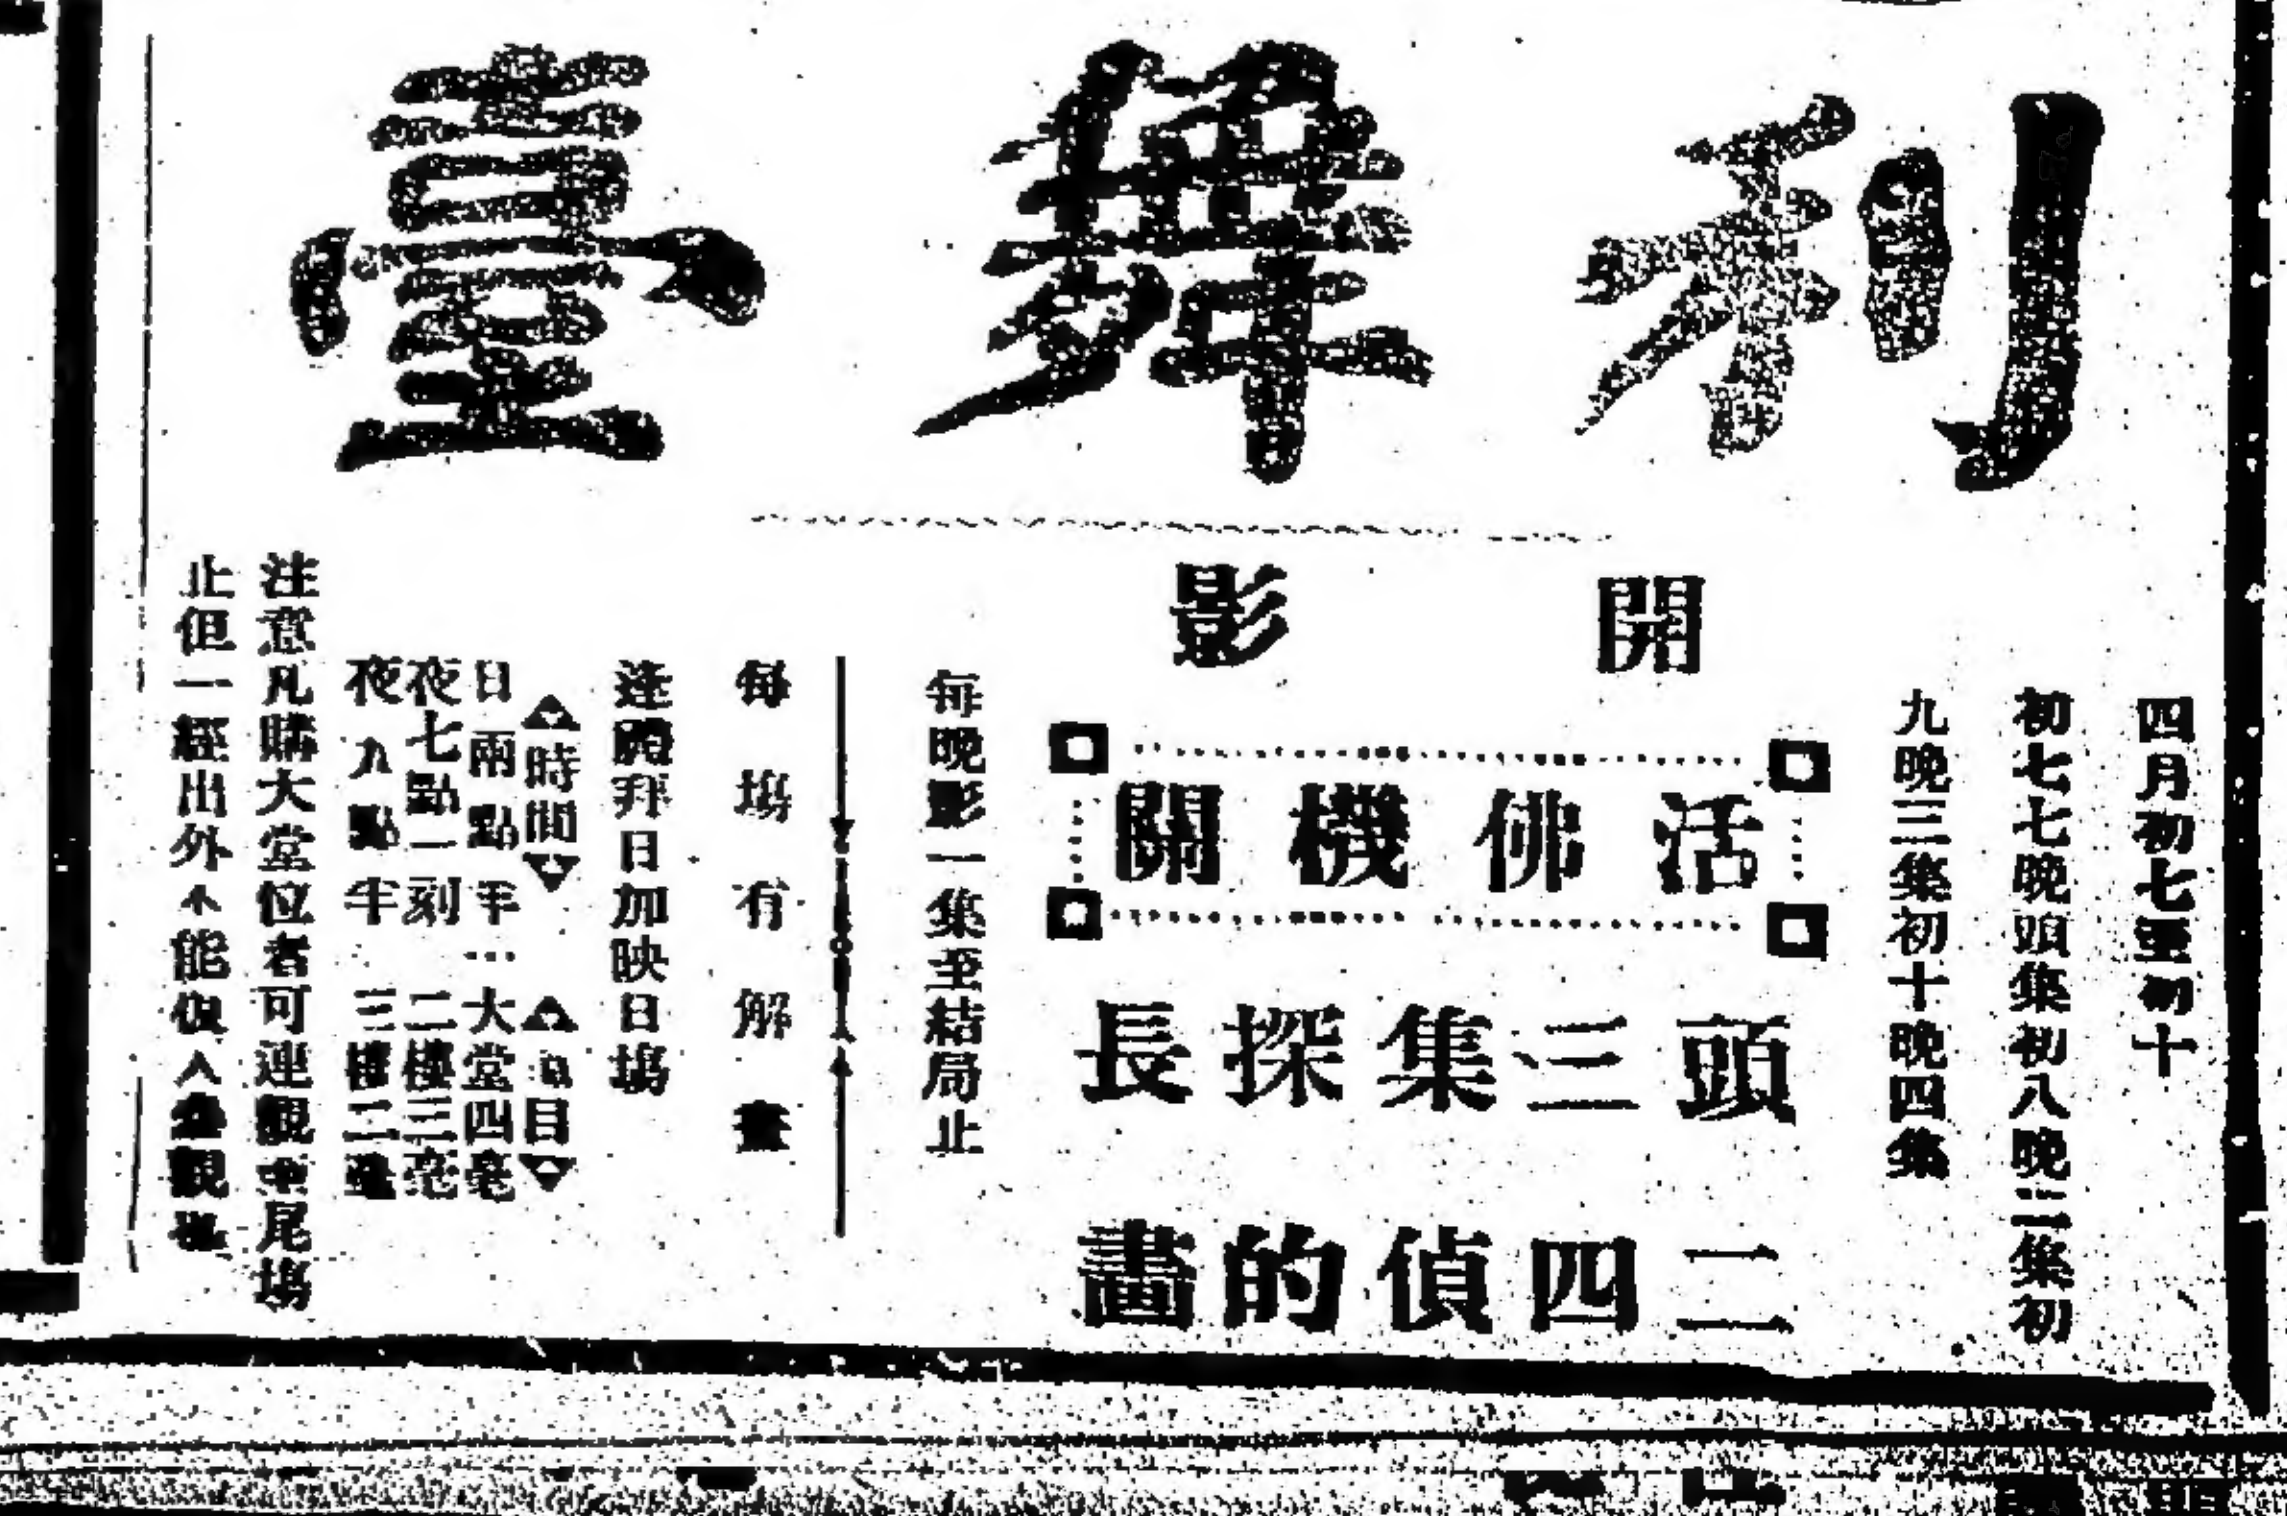 利舞臺
四月初七至初十
初七七晚頭集初八晚二集初
九晚三集初十晚四集
開影
活佛機關
頭二
三四
集偵
探的
長畫
每晚影一集至結局止
每場有解畫
逢禮拜日加映日場
時間
日兩點半…大堂四毫
夜七點一刻 二樓三毫
夜九點半 三樓二毫
注意凡購大堂位者可連觀至尾場
止但一經出外不能復入